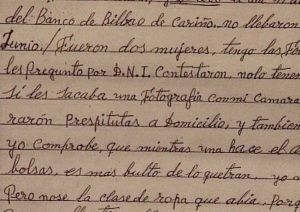 del Banco de Bilbao de Cariño, no llebaron
Junio./ Fueron dos mujeres, tengo las Fo
les Pregunto por D.N.I. Contestaron, nolo tener
si les sacaba una Fotografia conmi Camara
raron Prespitutas a Domicilio, y tambien
yo comprobe, que mientras una hace el a
bolsas, es mas bulto de lo quetran, yo a
Pero nose la clase de ropa que abia, Porq